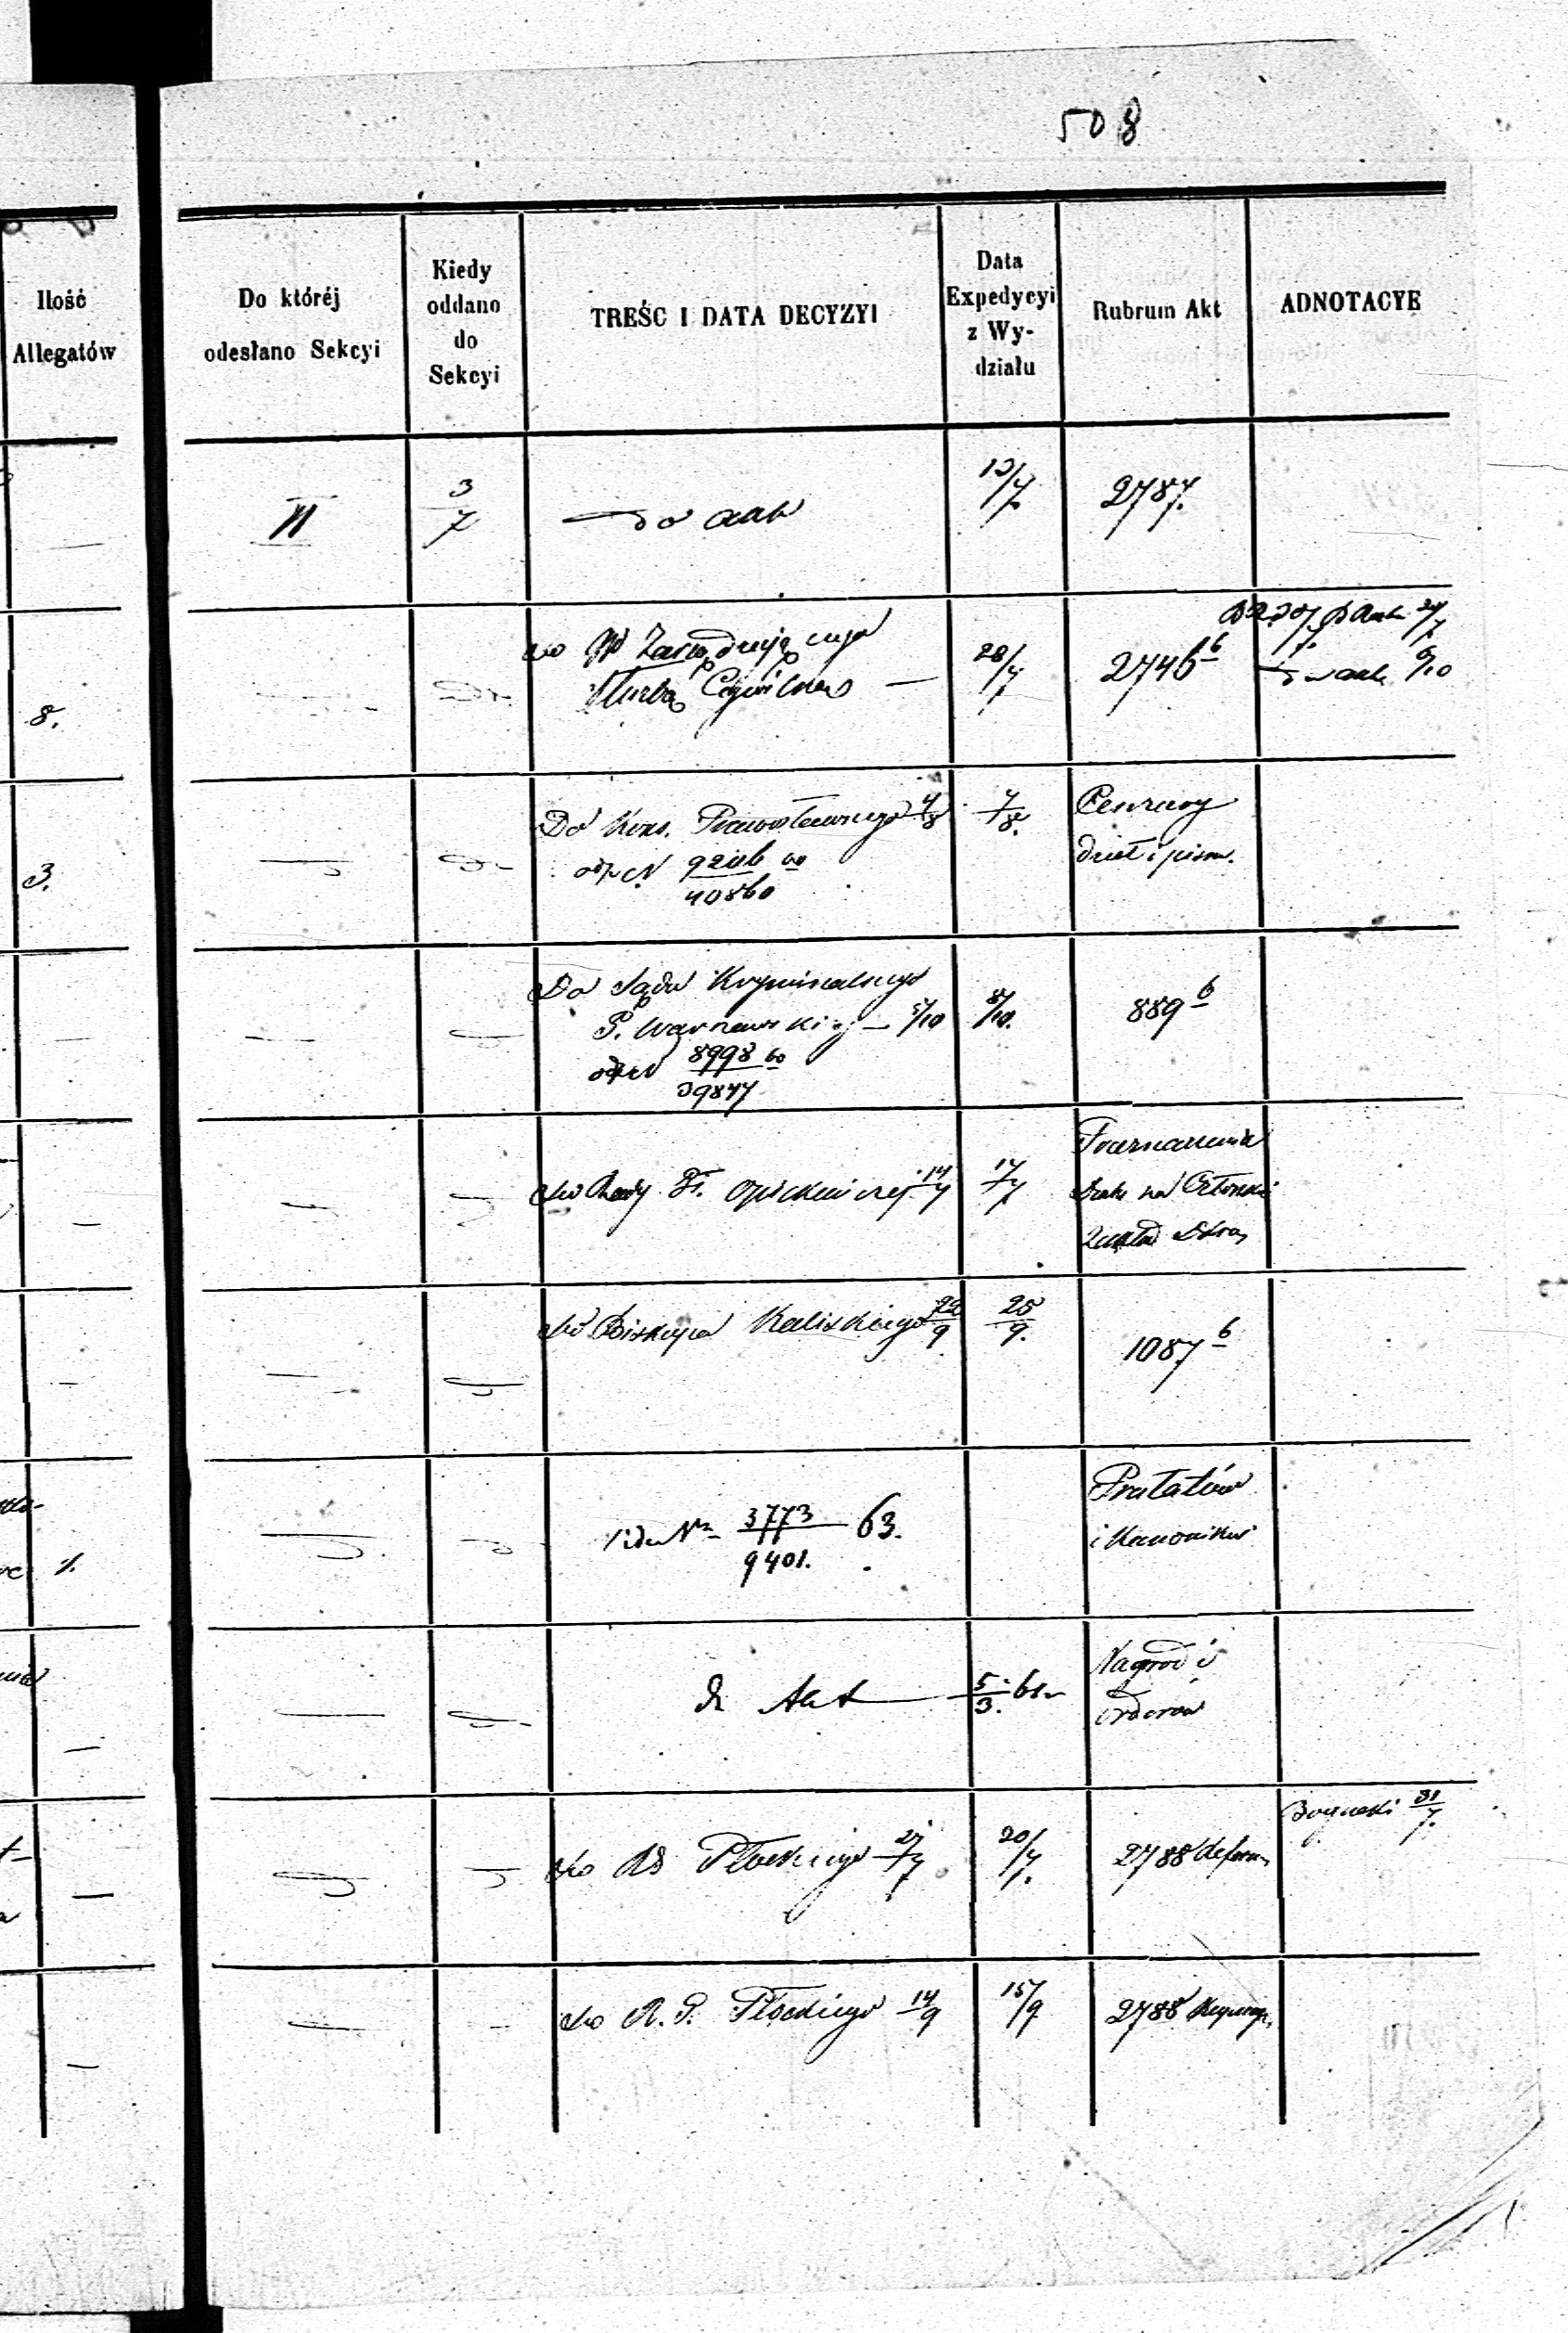 508
Ilość
Allegatów
Do któréj
odesłano Sekcyi
Kiedy
oddano
do
Sekcyi
TREŚC I DATA DECYZYI
Data
Expedycyi
z Wy-
działu
Rubrum Akt
ADNOTACYE
II
3/7
do akt
13/7
2787.
8.
do Zarządzającego
Służbą Cywilną —
28/7
2746 b
6/10
3.
Do Kons. Prawosławnego 4/8
odp N 9206/40860 60
7/8.
Cenzury
dzieł i pism.
Do Sądu Kryminalnego
P. Warszawskiej — 5/10
odp N 8998/39847 60
8/10.
889 b
do Rady Opiekuńczej 14/7
17/7
do Biskupa Kaliskiego 22/9
25/9.
1087 b
1.
vide Nr 3773/9401. 63.
Prałatów
i Kanoników
Do Akt — 5/3. 61r
Nagród i
orderów
do RG Płockiego 27/7
20/7.
2788
31/7.
do R. G. Płockiego 14/9
15/9
2788